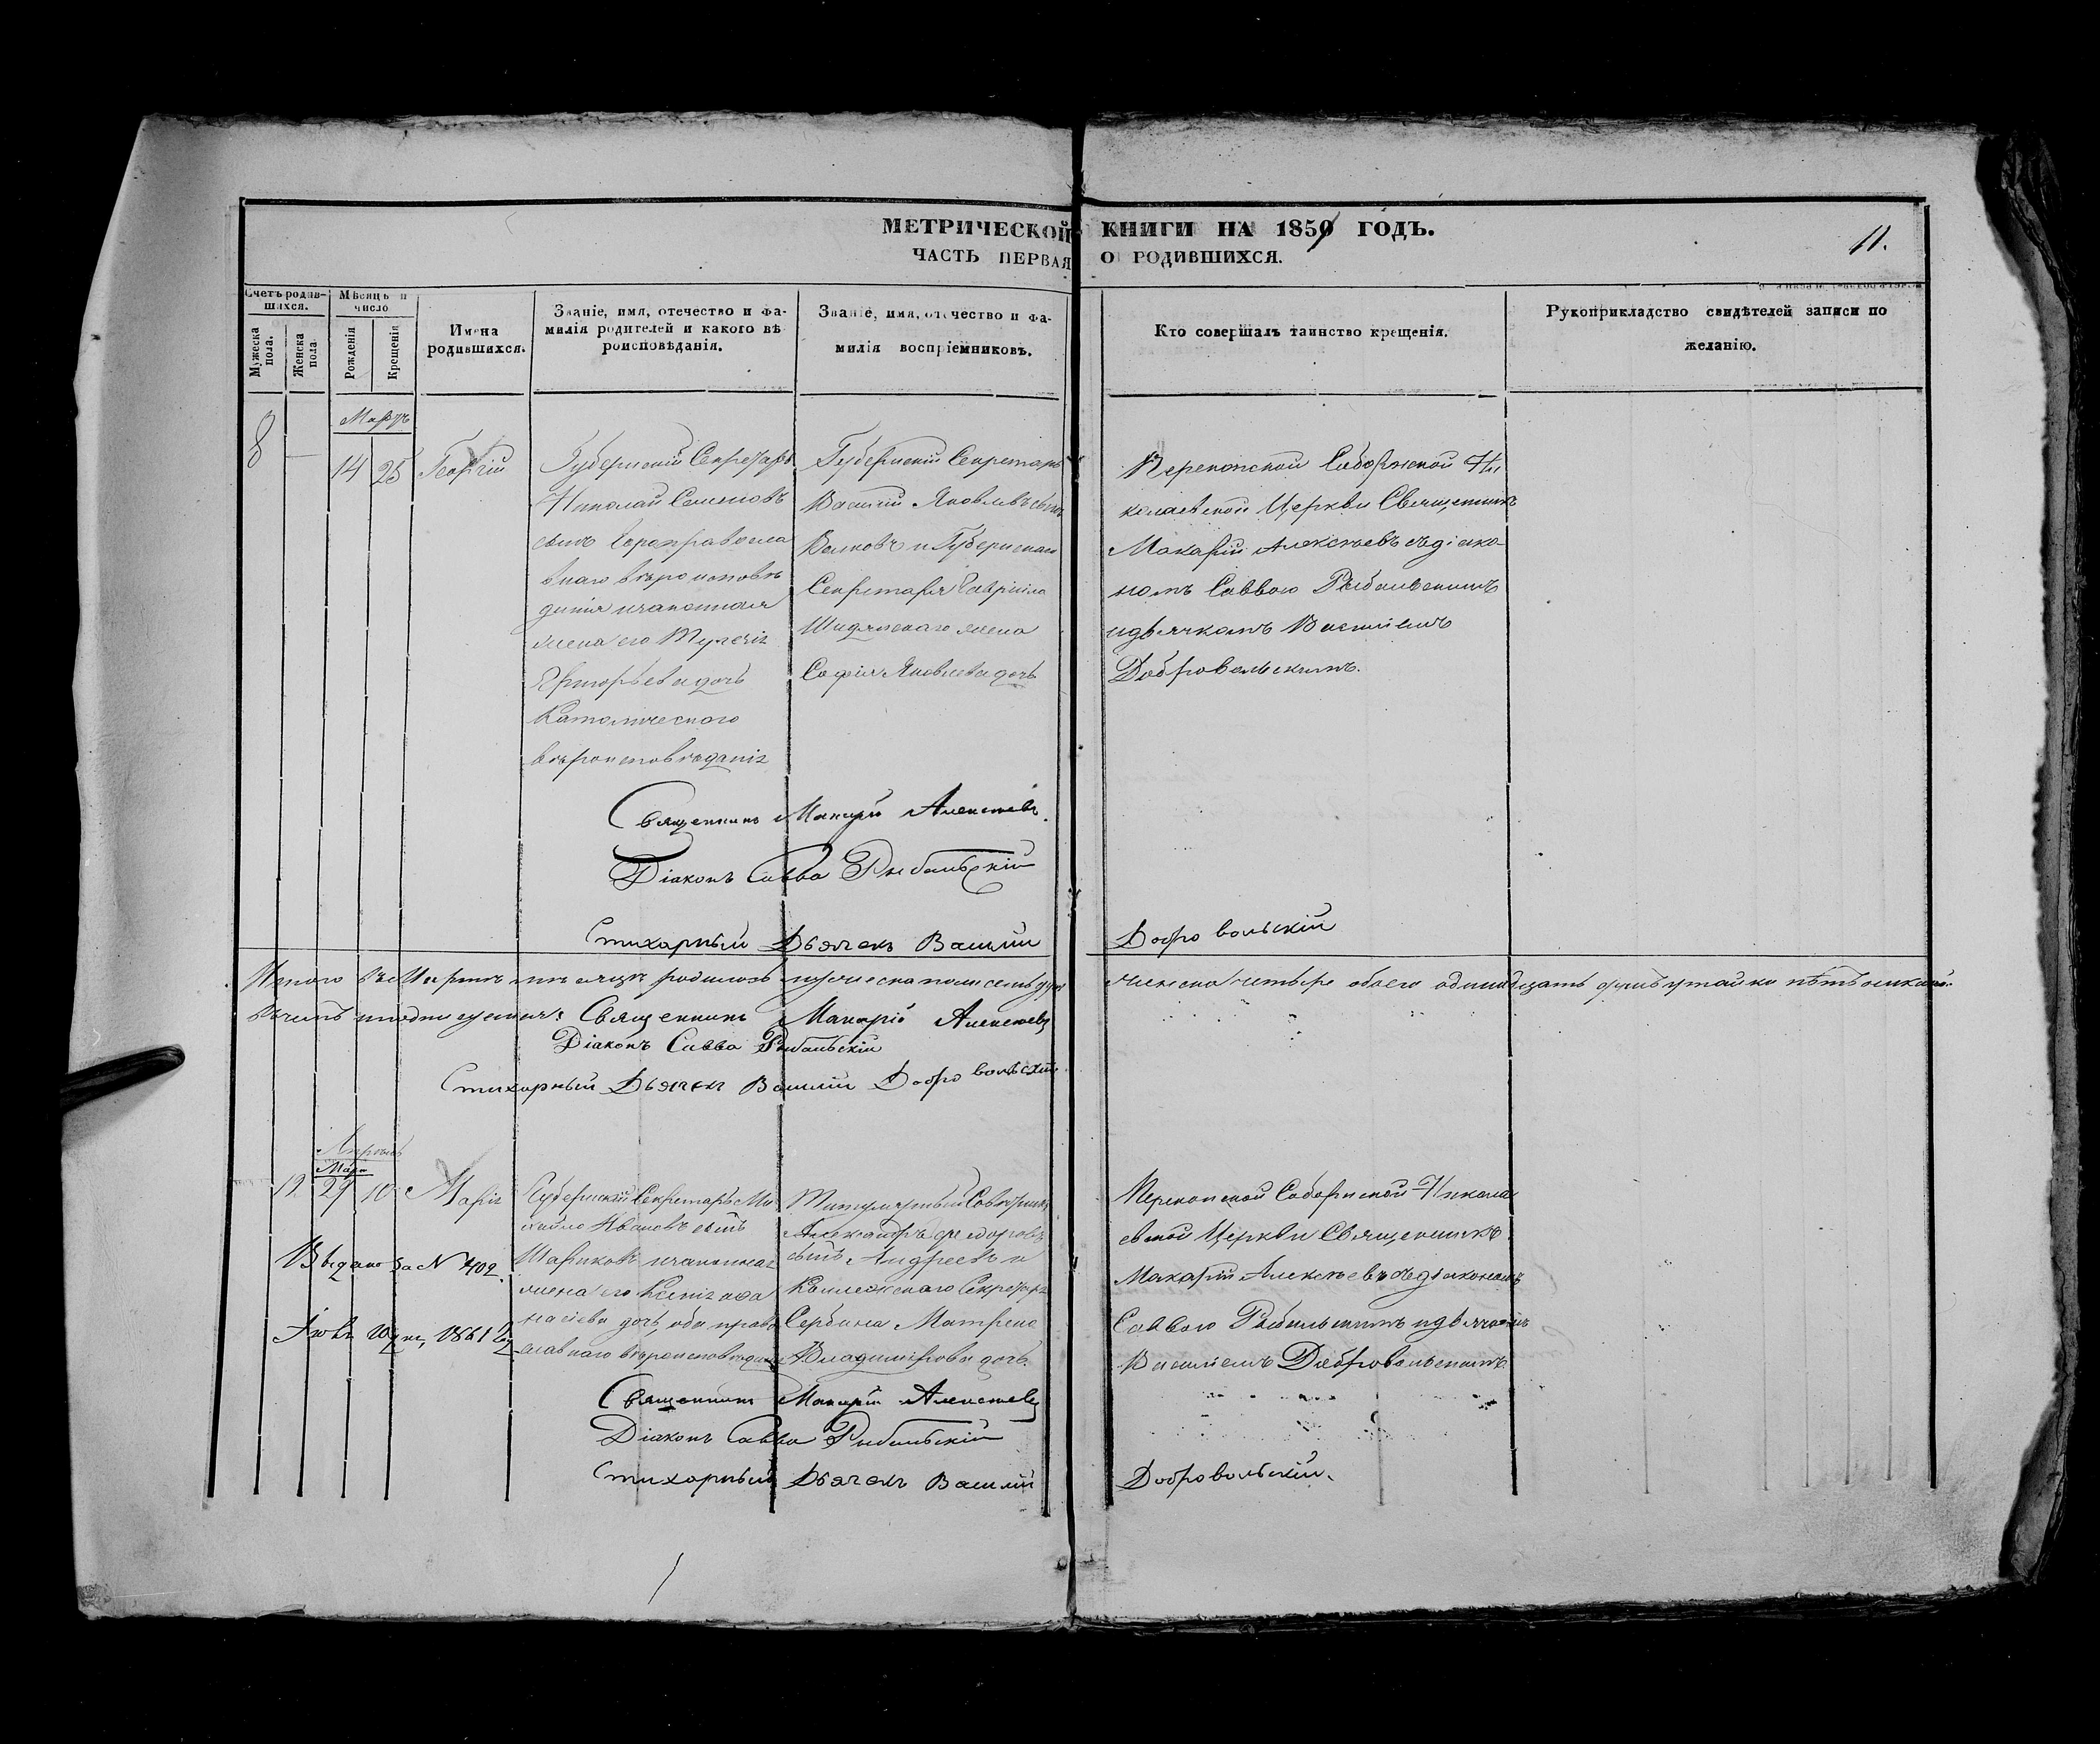 МЕТРИЧЕСКОЙ КНИГИ НА 1850 ГОДЪ.
ЧАСТЬ ПЕРВАЯ О РОДИВШИХСЯ.
11.
Счетъ родив-
шихся.
Мужеска пола.
Женска пола.
Мѣсяцъ и
число
Рожденія
Крещенія
Имена
родившихся.
Званіе, имя, отечество и фа-
милія родителей и какого вѣ
роисповѣданія.
Званіе, имя, отечество и фа-
милія воспріемниковъ.
Кто совершалъ таинство крещенія.
Рукоприкладство свидѣтелей записи по
желанію.
Мартъ
8 — 14 25 Георгій
Губернскій Секретарь
Николай Семеновъ
сынъ
вѣроисповѣ
данія и законная
жена его
Григорьева дочь
Католическаго
вѣроисповѣданія
Губернскій Секретарь
Василій Яковлевъ сынъ
Волковъ и Губернскаго
Секретаря Гавріила
жена
Софія Яковлева дочь
Перекопской Соборной Ни
колаевской Церкви Священникъ
Макарій Алексѣевъ съ діако-
номъ Саввою Рыбальскимъ
и дьячкомъ Василіемъ
Добровольскимъ.
Священникъ Макарій Алексѣевъ.
Діаконъ Савва Рыбальскій
Стихарный Дьячекъ Василій Добровольскій
Итого въ Мартѣ мѣсяцѣ родилось мужеска пола семь душъ женска четыре обоего одинадцать душъ утайки нѣтъ никакой
въ чемъ и подписуемся: Священникъ Макарій Алексѣевъ
Діаконъ Савва Рыбальскій
Стихарный Дьячекъ Василій Добровольскій
Апрѣль
Март
29 10 Марія
Выдано за N 402.
1861
Губернскій Секретарь Ми
хайло Ивановъ сынъ
Шариковъ и законная
жена его Ксенія Афа
насіева дочь, оба право
славнаго вѣроисповѣданія
Титулярный Совѣтникъ
Александръ Федоровъ
сынъ Андреевъ и
Коллежскаго Секретаря
Сербина Матрена
Владимірова дочь
Перекопской Соборной Никола
евской Церкви Священникъ
Макарій Алексѣевъ съ діакономъ
Саввою Рыбальскимъ и дьячкомъ
Василіемъ Добровольскимъ
Священникъ Макарій Алексѣевъ
Діаконъ Савва Рыбальскій
Стихарный Дьячекъ Василій Добровольскій.